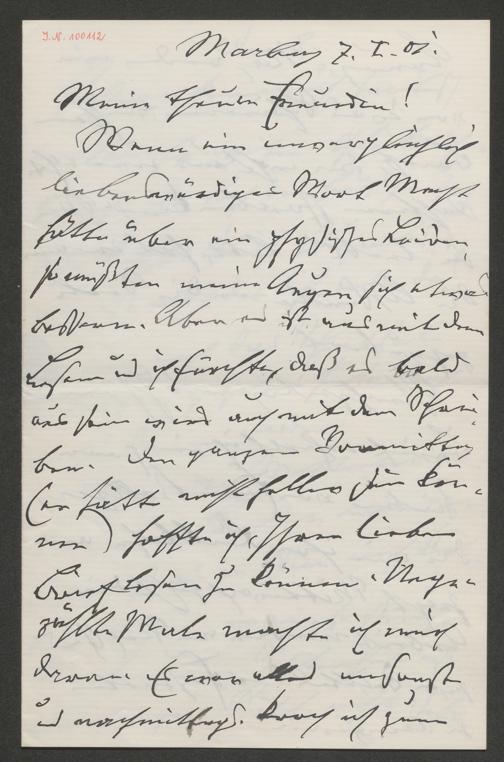 J.N. 100112
Marburg 7. I. 01.
Meine theure Freundin!
Wenn ein unvergleichlich
liebenswürdiges Wort Macht
hätte über ein physisches Leiden,
so müßten meine Augen sich etwas
bessern. Aber es ist aus mit dem
Lesen u ich fürchte, daß es bald
aus sein wird auch mit dem Schrei-
ben. Den ganzen Vormittag
(er hätte nicht heller sein kön-
nen) hoffte ich, Ihren lieben
Brief lesen zu können. Unge-
zählte Male machte ich mich
daran. Es war alles umsonst
u nachmittags. ich zum